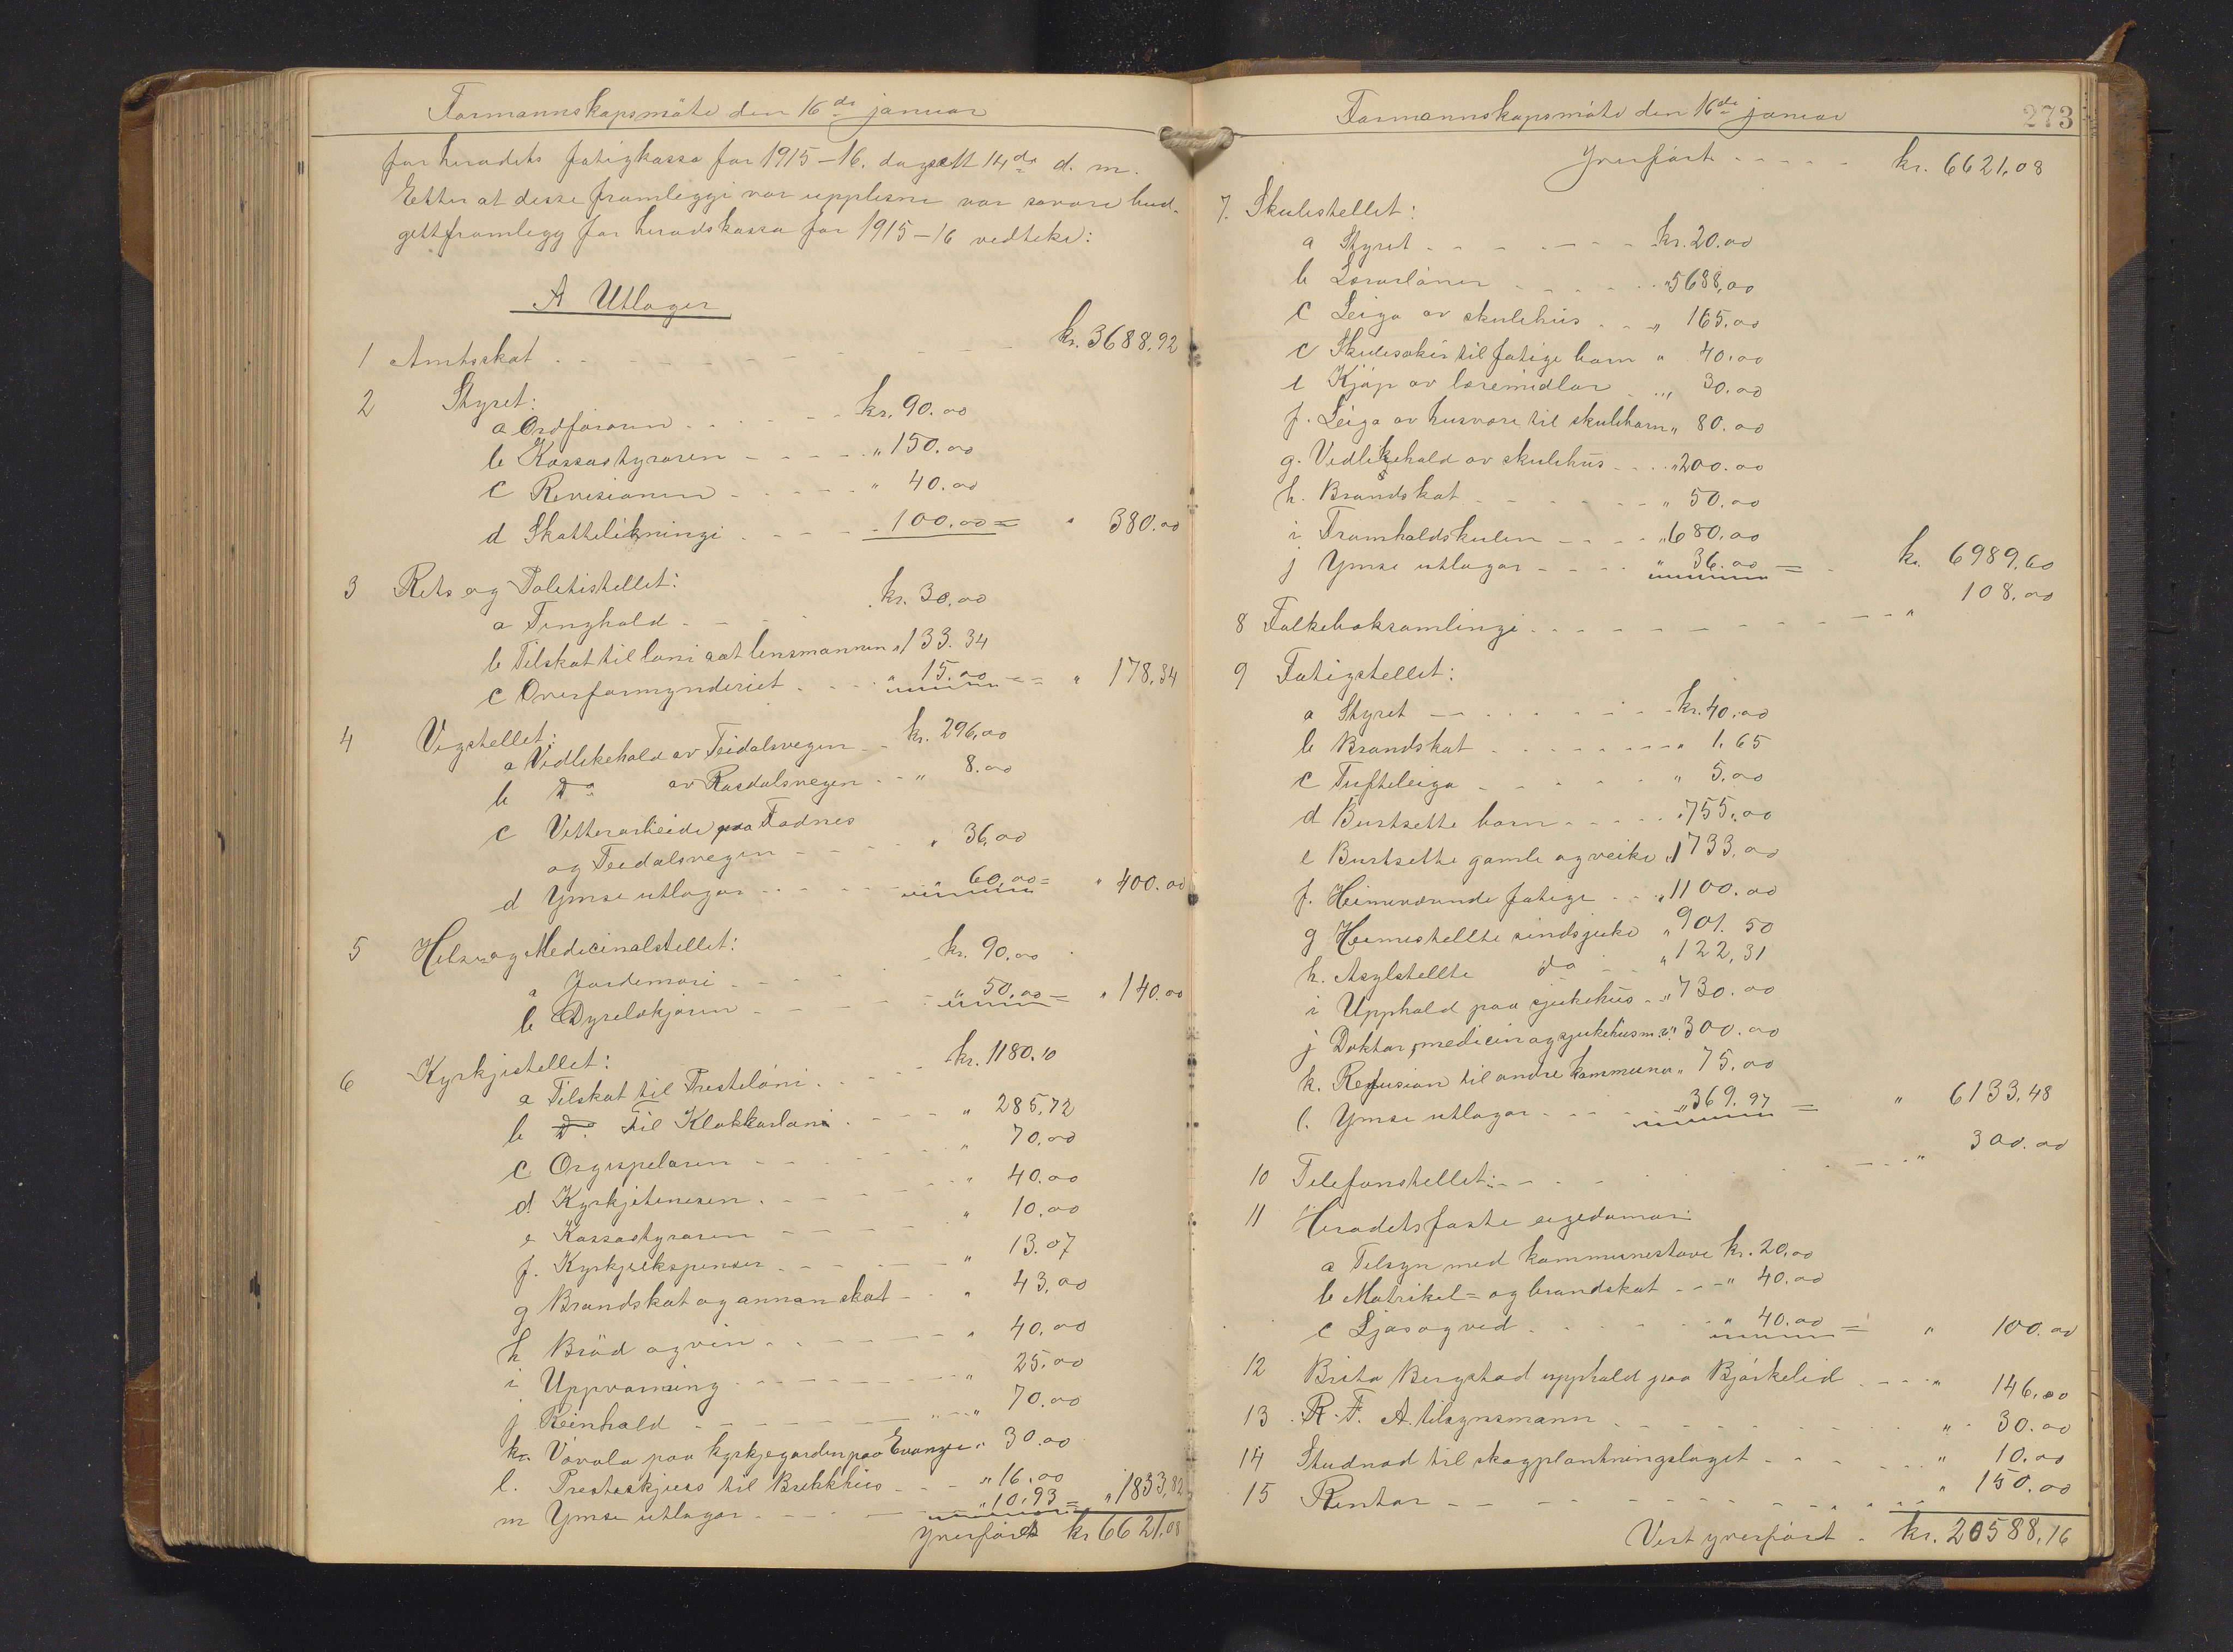 Formannskapsmöte den 16de januar
for heradets fatigkassa for 1915–16. dagsett 14de d. m.
Etter at desse framleggi var upplesne var sovore bud-
gettframlegg for heradskassa for 1915–16 vedteke:
A Utlogor
1 Amtsskat kr. 3688,92
2 Styret:
a Ordføraren kr. 90.00
b Kassastyraren „ 150.00
c Revisionen „ 40.00
d Skattelikningi 100.00 = „ 380.00
3 Rets og Politistellet:
a Tinghald kr. 30.00
b Tilskot til løni aat lensmannen „ 133.34
c Overformynderiet „ 15.00 = „ 178,34
4 Vegstellet:
a Vedlikehald av Teidalsvegen kr. 296,00
b Do av Rasdalsvegen „ 8.00
c Vetterarbeide paa Fadnes
og Teidalsvegen „ 36,00
d Ymse utlogor „ 60.00 = „ 400.00
5 Helse og Medicinalstellet:
a Jordemori kr. 90.00
b Dyrelækjaren „ 50,00 = „ 140.00
6 Kyrkjestellet:
a Tilskot til Presteløni kr. 1180.10
b Do Til Klokkarløni „ 285,72
c Orgespelaren „ 70.00
d. Kyrkjetenesen „ 40.00
e Kassastyraren „ 10.00
f. Kyrkjeekspenser „ 13.07
g Brandskat og annan skat „ 43,00
h Bröd og vin „ 40,00
i Uppvarming „ 25.00
j Reinhald „ 70.00
k. Vovola paa kyrkjegarden paa Evanger „ 30.00
l. Presteskjuss til Brekkhus „ 16.00
m Ymse utlogor „ 10,93 = „ 1833,82
Yverført kr 6621.08
Formannskapsmöte den 16de januar
273
Yverført kr. 6621,08
7. Skulestellet:
a Styret kr. 20.00
b Lærarløner „ 5688,00
c Leiga av skulehus „ 165.00
c Skulesaker til fatige born „ 40.00
e Kjöp av læremidlar „ 30.00
f. Leiga av husvære til skuleborn „ 80.00
g. Vedlikehald av skulehus „ 200.00
h. Brandskat „ 50.00
i Framhaldskulen „ 680.00
j Ymse utlogor „ 36.00 = kr. 6989,60
8 Folkeboksamlingi „ 108.00
9 Fatigstellet:
a Styret kr. 40.00
b Brandskat „ 1,65
c Tufteleiga „ 5.00
d Burtsette born „ 755.00
e Burtsette gamle og veike „ 1733,00
f. Heimeverande fatige „ 1100.00
g Heimestellte sindsjuke „ 901.50
h. Asylstellte do „ 122,31
i Upphald paa sjukehus „ 730.00
j Doktor, medicin og sjukehus m.v. „ 300.00
k. Refusion til andre kommunar „ 75.00
l. Ymse utlogor „ 369.97 = „ 6133,48
10 Telefonstellet: „ 300.00
11 Heradets faste eigedomar:
a Tilsyn med kommunestova kr. 20,00
b Matrikel= og brandskat „ 40.00
c Ljos og ved „ 40.00 = „ 100.00
12 Brita Bergstad upphald paa Björkelid „ 146.00
13 R. F. A. tilsynsmann „ 30.00
14 Studnad til skogplantningslaget „ 10.00
15 Rentor „ 150.00
Vert yverført kr. 20588,16